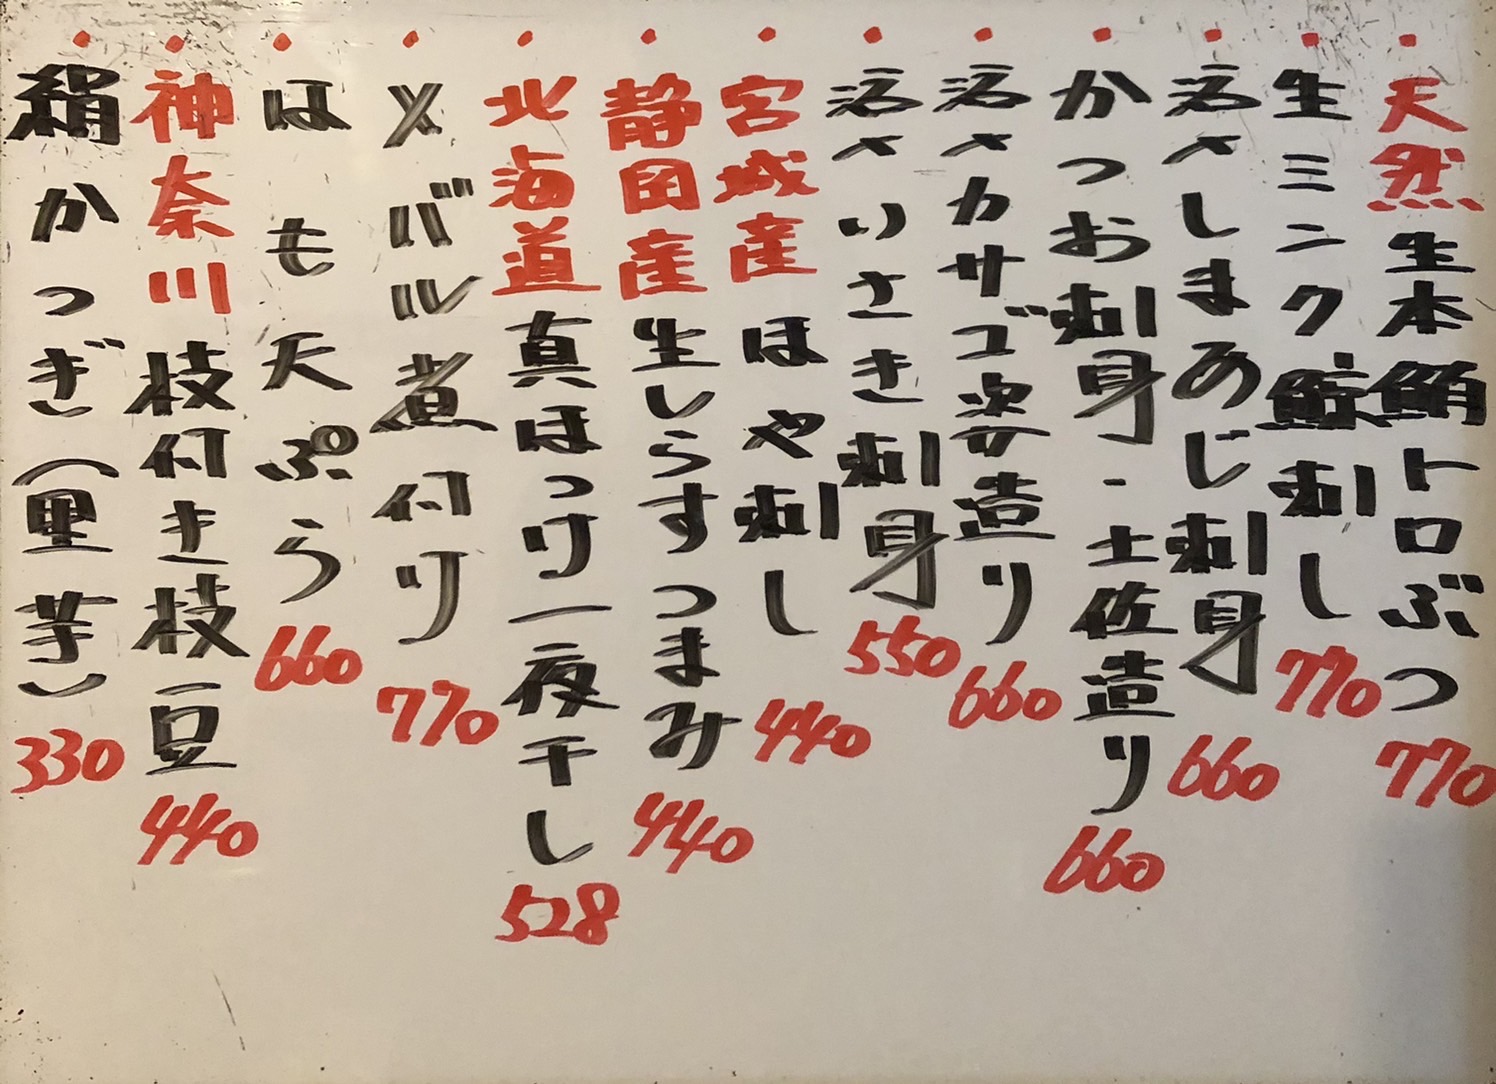 ・天然生本鮪トロぶつ 770
・生ミンク鯨刺し 770
・活〆しまあじ刺身 660
・かつお刺身-土佐造り 660
・活〆カサゴ姿造り 660
・活〆いさき刺身 550
・宮城産ほや刺し 440
・静岡産生しらすつまみ 440
・北海道真ほっけ一夜干し 528
・メバル煮付け 770
・はも天ぷら 660
・神奈川枝付き枝豆 440
・絹かつぎ(里芋) 330